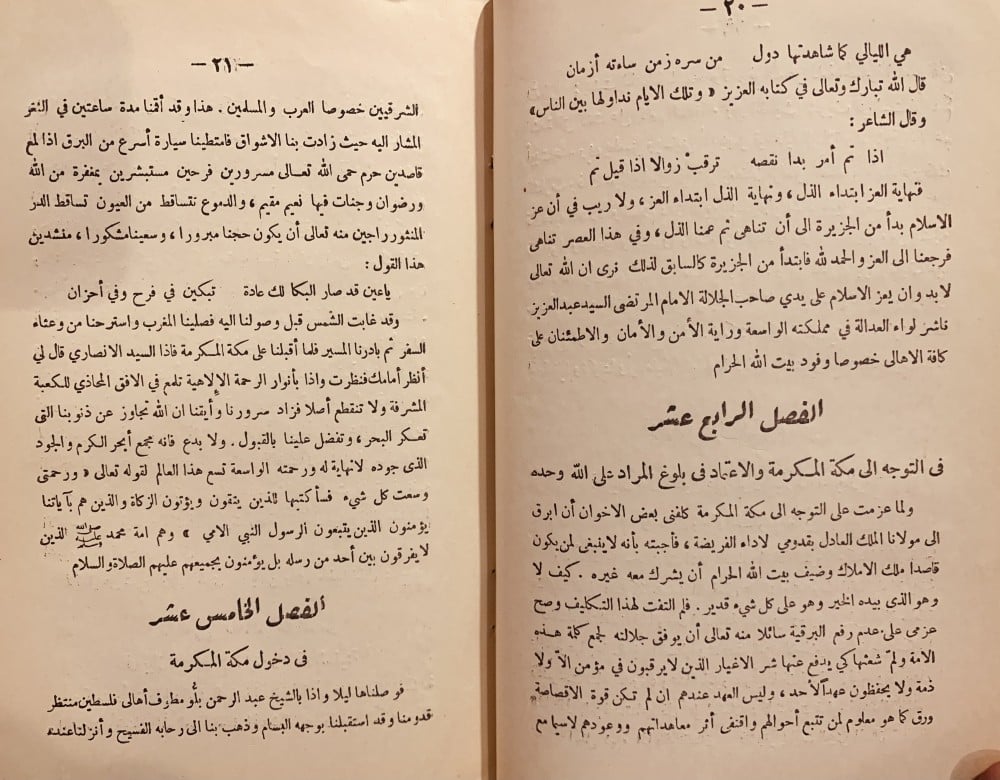 — ٢٠ —
هي الليالي كما شاهدتها دول    من سره زمن ساءته أزمان
قال الله تبارك وتعالى في كتابه العزيز « وتلك الايام نداولها بين الناس»
وقال الشاعر :
اذا تم أمر بدا نقصه    ترقب زوالا اذا قيل تم
فنهاية العز ابتداء الذل ، ونهاية الذل ابتداء العز ، ولا ريب في أن عز
الاسلام بدأ من الجزيرة الى أن تناهى ثم عمنا الذل ، وفي هذا العصر تناهى
فرجعنا الى العز والحمد لله فابتدأ من الجزيرة كالسابق لذلك نرى ان الله تعالى
لابد وان يعز الاسلام على يدي صاحب الجلالة الامام المرتضى السيد عبد العزيز
ناشر لواء العدالة في مملكته الواسعة وراية الأمن والأمان والاطمئنان على
كافة الاهالى خصوصا وفود بيت الله الحرام
الفصل الرابع عشر
فى التوجه الى مكة المكرمة والاعتماد فى بلوغ المراد على الله وحده
ولما عزمت على التوجه الى مكة المكرمة كلفنى بعض الاخوان أن ابرق
الى مولانا الملك العادل بقدومي لاداء الفريضة ، فأجبته بأنه لاينبغى لمن يكون
قاصدا ملك الاملاك وضيف بيت الله الحرام أن يشرك معه غيره . كيف لا
وهو الذى بيده الخير وهو على كل شيء قدير . فلم التفت لهذا التكليف وصح
عزمى على عدم رفع البرقية سائلا منه تعالى أن يوفق جلالته لجمع كلمة هذه
الامة ولم شعثها كي يدفع عنها شر الاغيار الذين لايرقبون في مؤمن الاّ ولا
ذمة ولا يحفظون عهداً لأحد ، وليس العهد عندهم ان لم تكن قوة الاقصاصة
ورق كما هو معلوم لمن تتبع أحوالهم واقتفى أثر معاهداتهم ووعودهم لاسيما مع
— ٢١ —
الشرقيين خصوصا العرب والمسلمين . هذا وقد أقمنا مدة ساعتين في الثغر
المشار اليه حيث زادت بنا الاشواق فامتطينا سيارة أسرع من البرق اذا لمع
قاصدين حرم حمى الله تعالى مسرورين فرحين مستبشرين بمغفرة من الله
ورضوان وجنات فيها نعيم مقيم ، والدموع تتساقط من العيون تساقط الدر
المنثور راجين منه تعالى أن يكون حجنا مبرورا ، وسعينا مشكورا ، منشدين
هذا القول :
ياعين قد صار البكا لك عادة    تبكين في فرح وفي أحزان
وقد غابت الشمس قبل وصولنا اليه فصلينا المغرب واسترحنا من وعثاء
السفر ثم بادرنا المسير فلما أقبلنا على مكة المكرمة فاذا السيد الانصاري قال لي
أنظر أمامك فنظرت واذا بأنوار الرحمة الإلاهية تلمع في الافق المحاذي للكعبة
المشرفة ولا تنقطع أصلا فزاد سرورنا وأيقنا ان الله تجاوز عن ذنوبنا التى
تعكر البحر ، وتفضل علينا بالقبول . ولا بدع فانه مجمع أبحر الكرم والجود
الذى جوده لانهاية له ورحمته الواسعة تسع هذا العالم لقوله تعالى « ورحمتى
وسعت كل شيء فسأكتبها للذين يتقون ويؤتون الزكاة والذين هم بآياتنا
يؤمنون الذين يتبعون الرسول النبي الامي » وهم امة محمد ﷺ الذين
لايفرقون بين أحد من رسله بل يؤمنون بجميعهم عليهم الصلاة والسلام
الفصل الخامس عشر
فى دخول مكة المكرمة
فوصلناها ليلا واذا بالشيخ عبد الرحمن بلُو مطرف أهالى فلسطين منتظر
قدومنا وقد استقبلنا بوجهه البسام وذهب بنا الى رحابه الفسيح وأنزلنا عنده